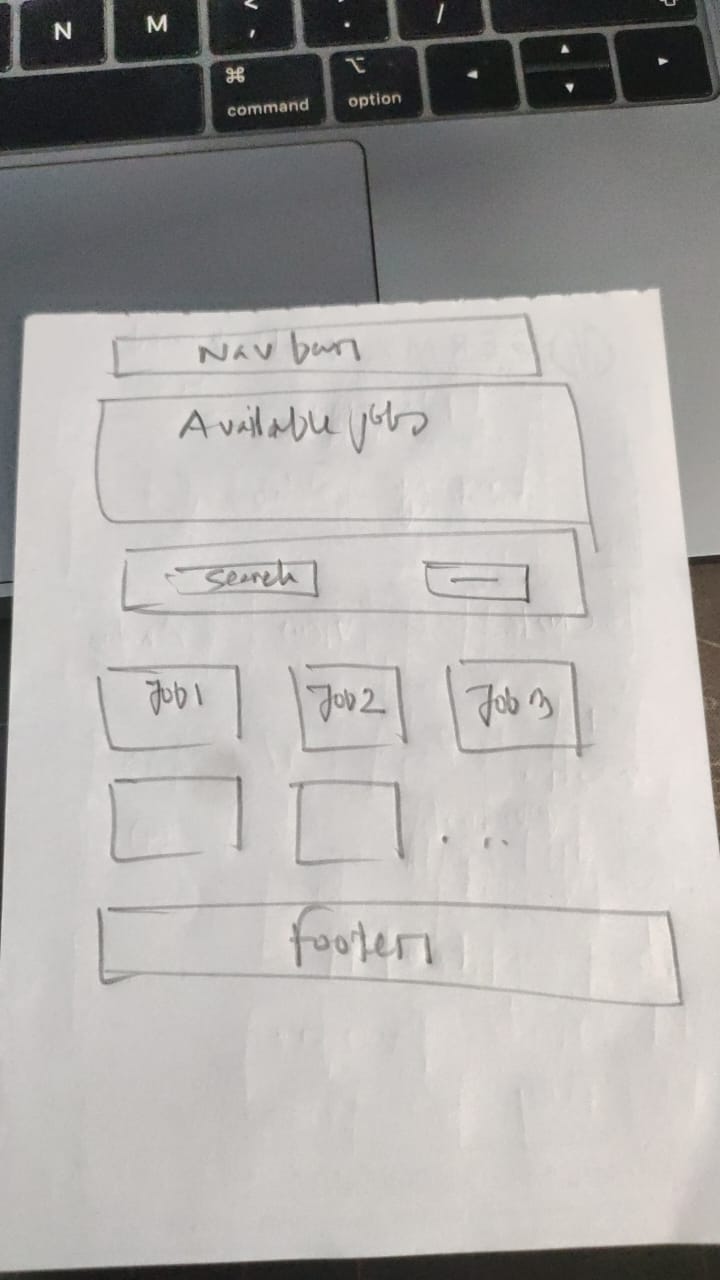 N M < , . /
⌘ ⌥ ◄ ▲ ►
command option ▼
Nav bar
Available jobs
Search —
Job 1 Job 2 Job 3
. . . .
footer